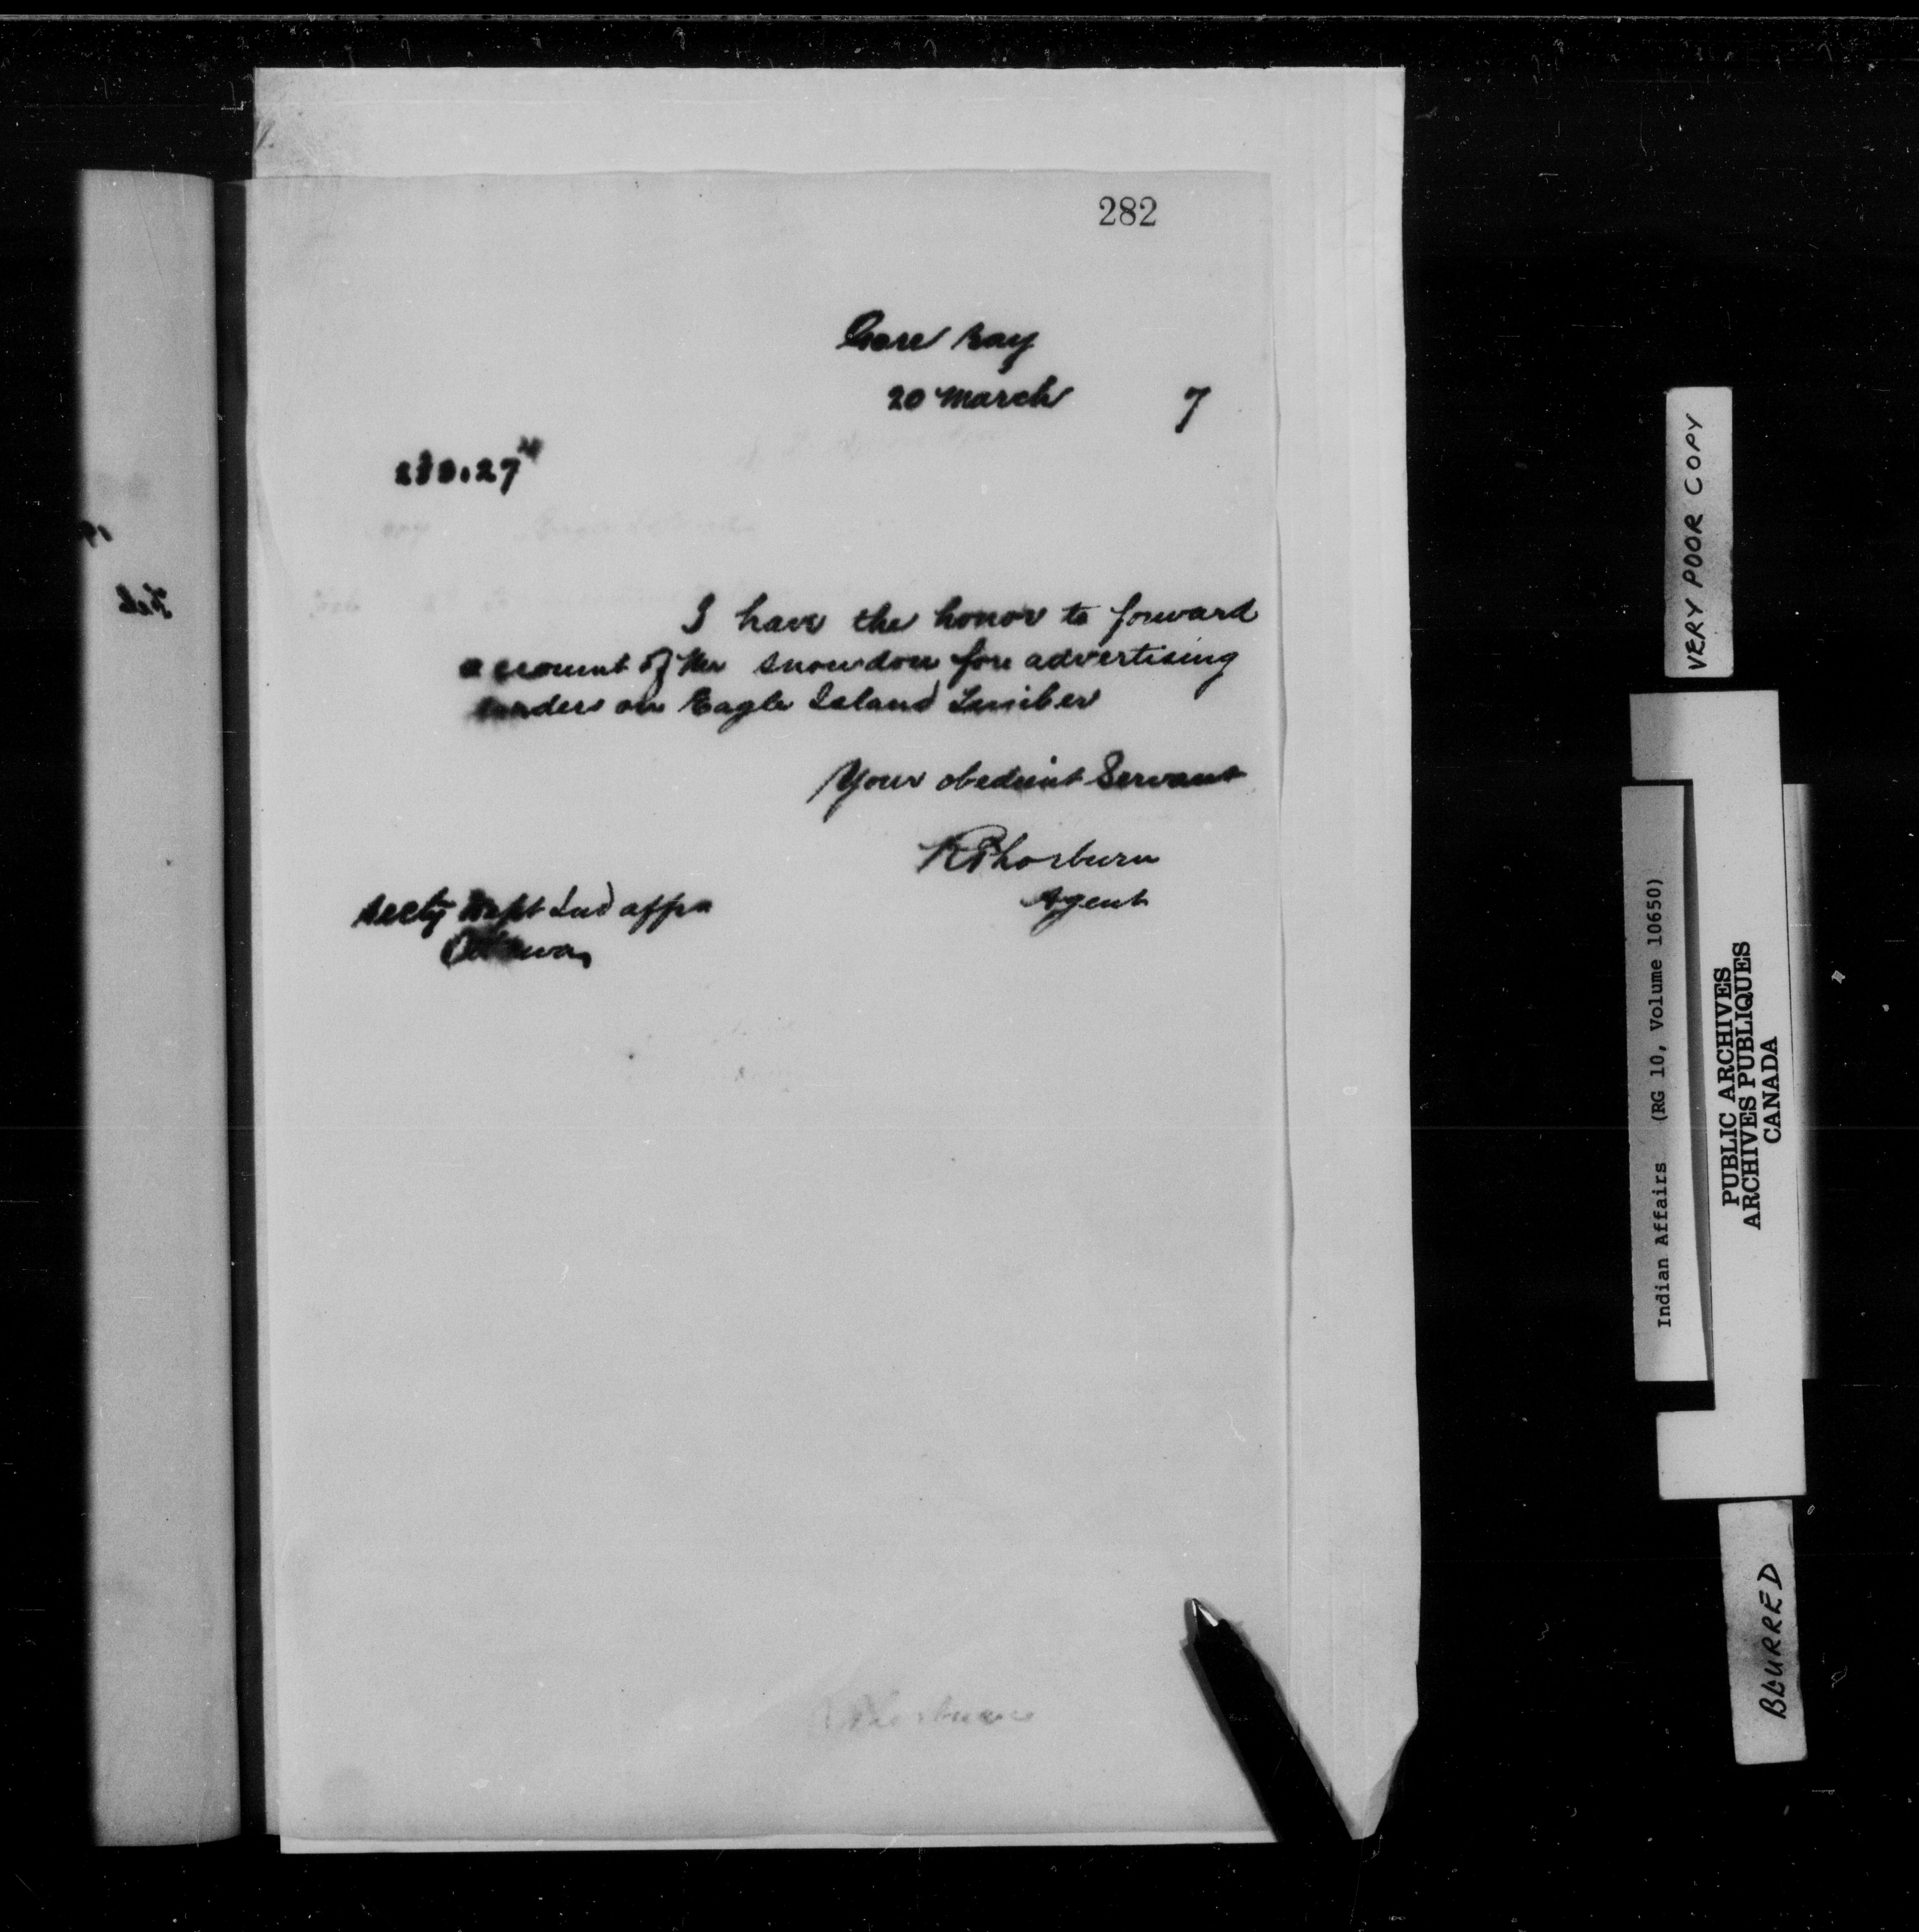 282
Gore Bay
20 March 7
I have the honor to forward
account of Mr Snowdon for advertising
tenders on Eagle Island Timber
Your obedient Servant
R Thorburn
Agent
Secty Dept Ind affrs
Ottawa
Feb
VERY POOR COPY
Indian Affairs (RG 10, Volume 10650)
PUBLIC ARCHIVES
ARCHIVES PUBLIQUES
CANADA
BLURRED